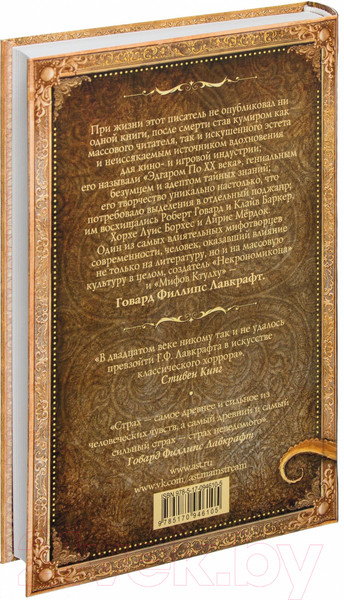 При жизни этот писатель не опубликовал ни
одной книги, после смерти став кумиром как
массового читателя, так и искушенного эстета
и неиссякаемым источником вдохновения
для кино- и игровой индустрии;
его называли «Эдгаром По XX века», гениальным
безумцем и адептом тайных знаний;
его творчество уникально настолько, что
потребовало выделения в отдельный поджанр;
им восхищались Роберт Говард и Клайв Баркер,
Хорхе Луис Борхес и Айрис Мёрдок.
Один из самых влиятельных мифотворцев
современности, человек, оказавший влияние
не только на литературу, но и на массовую
культуру в целом, создатель «Некрономикона»
и «Мифов Ктулху» —
Говард Филлипс Лавкрафт.
«В двадцатом веке никому так и не удалось
превзойти Г.Ф. Лавкрафта в искусстве
классического хоррора».
Стивен Кинг
«Страх — самое древнее и сильное из
человеческих чувств, а самый древний и самый
сильный страх — страх неведомого».
Говард Филлипс Лавкрафт
www.ast.ru
www.vk.com/ast.mainstream
ISBN 978-5-17-094610-5
9785170946105